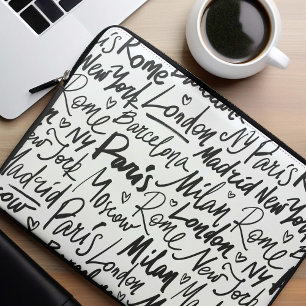 Paris Rome Barcelona
New York London NY Paris
Rome Barcelona Madrid New York
NY Paris Milan Rome
New York Moscow Rome London
Madrid Paris London Milan New York
Rome
London Milan